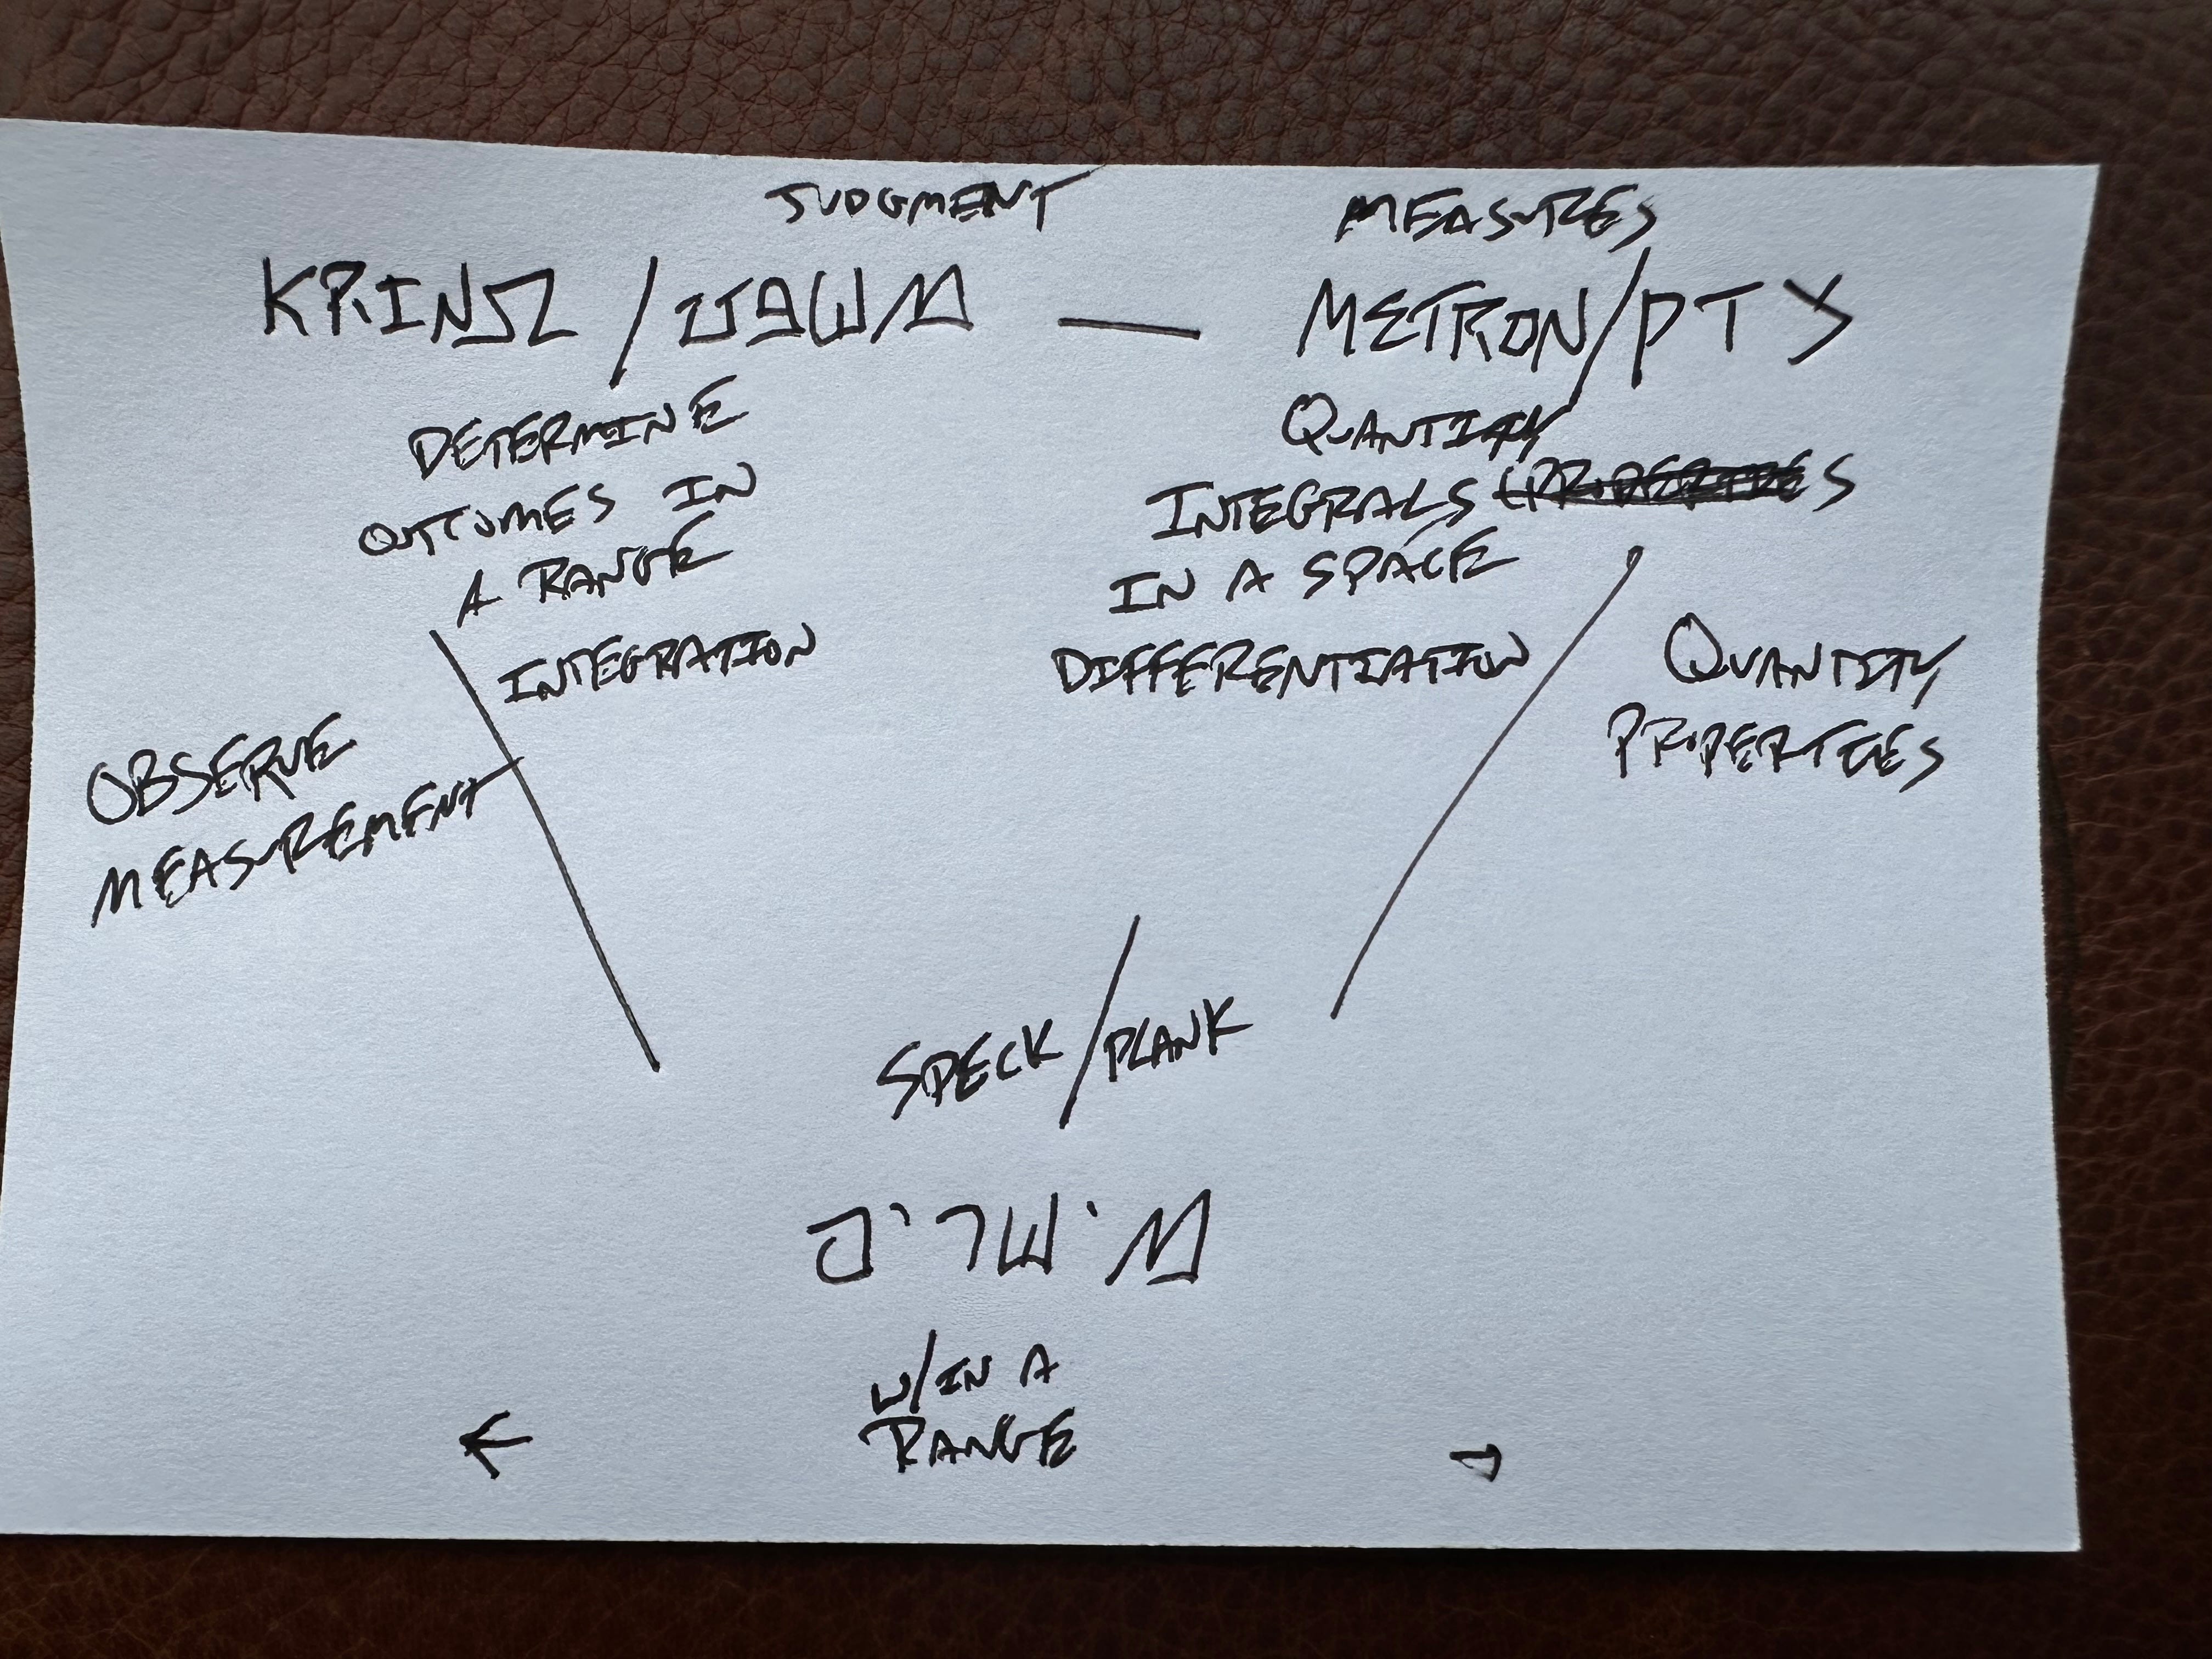 JUDGMENT MEASURES
KRINΩ / משפט — METRON / צדק
DETERMINE
OUTCOMES IN
A RANGE
INTEGRATION
QUANTIFY
INTEGRALS
IN A SPACE
DIFFERENTIATION
OBSERVE
MEASUREMENT
QUANTITY
PROPERTIES
SPECK / PLANK
מישרים
W/IN A
RANGE
← →